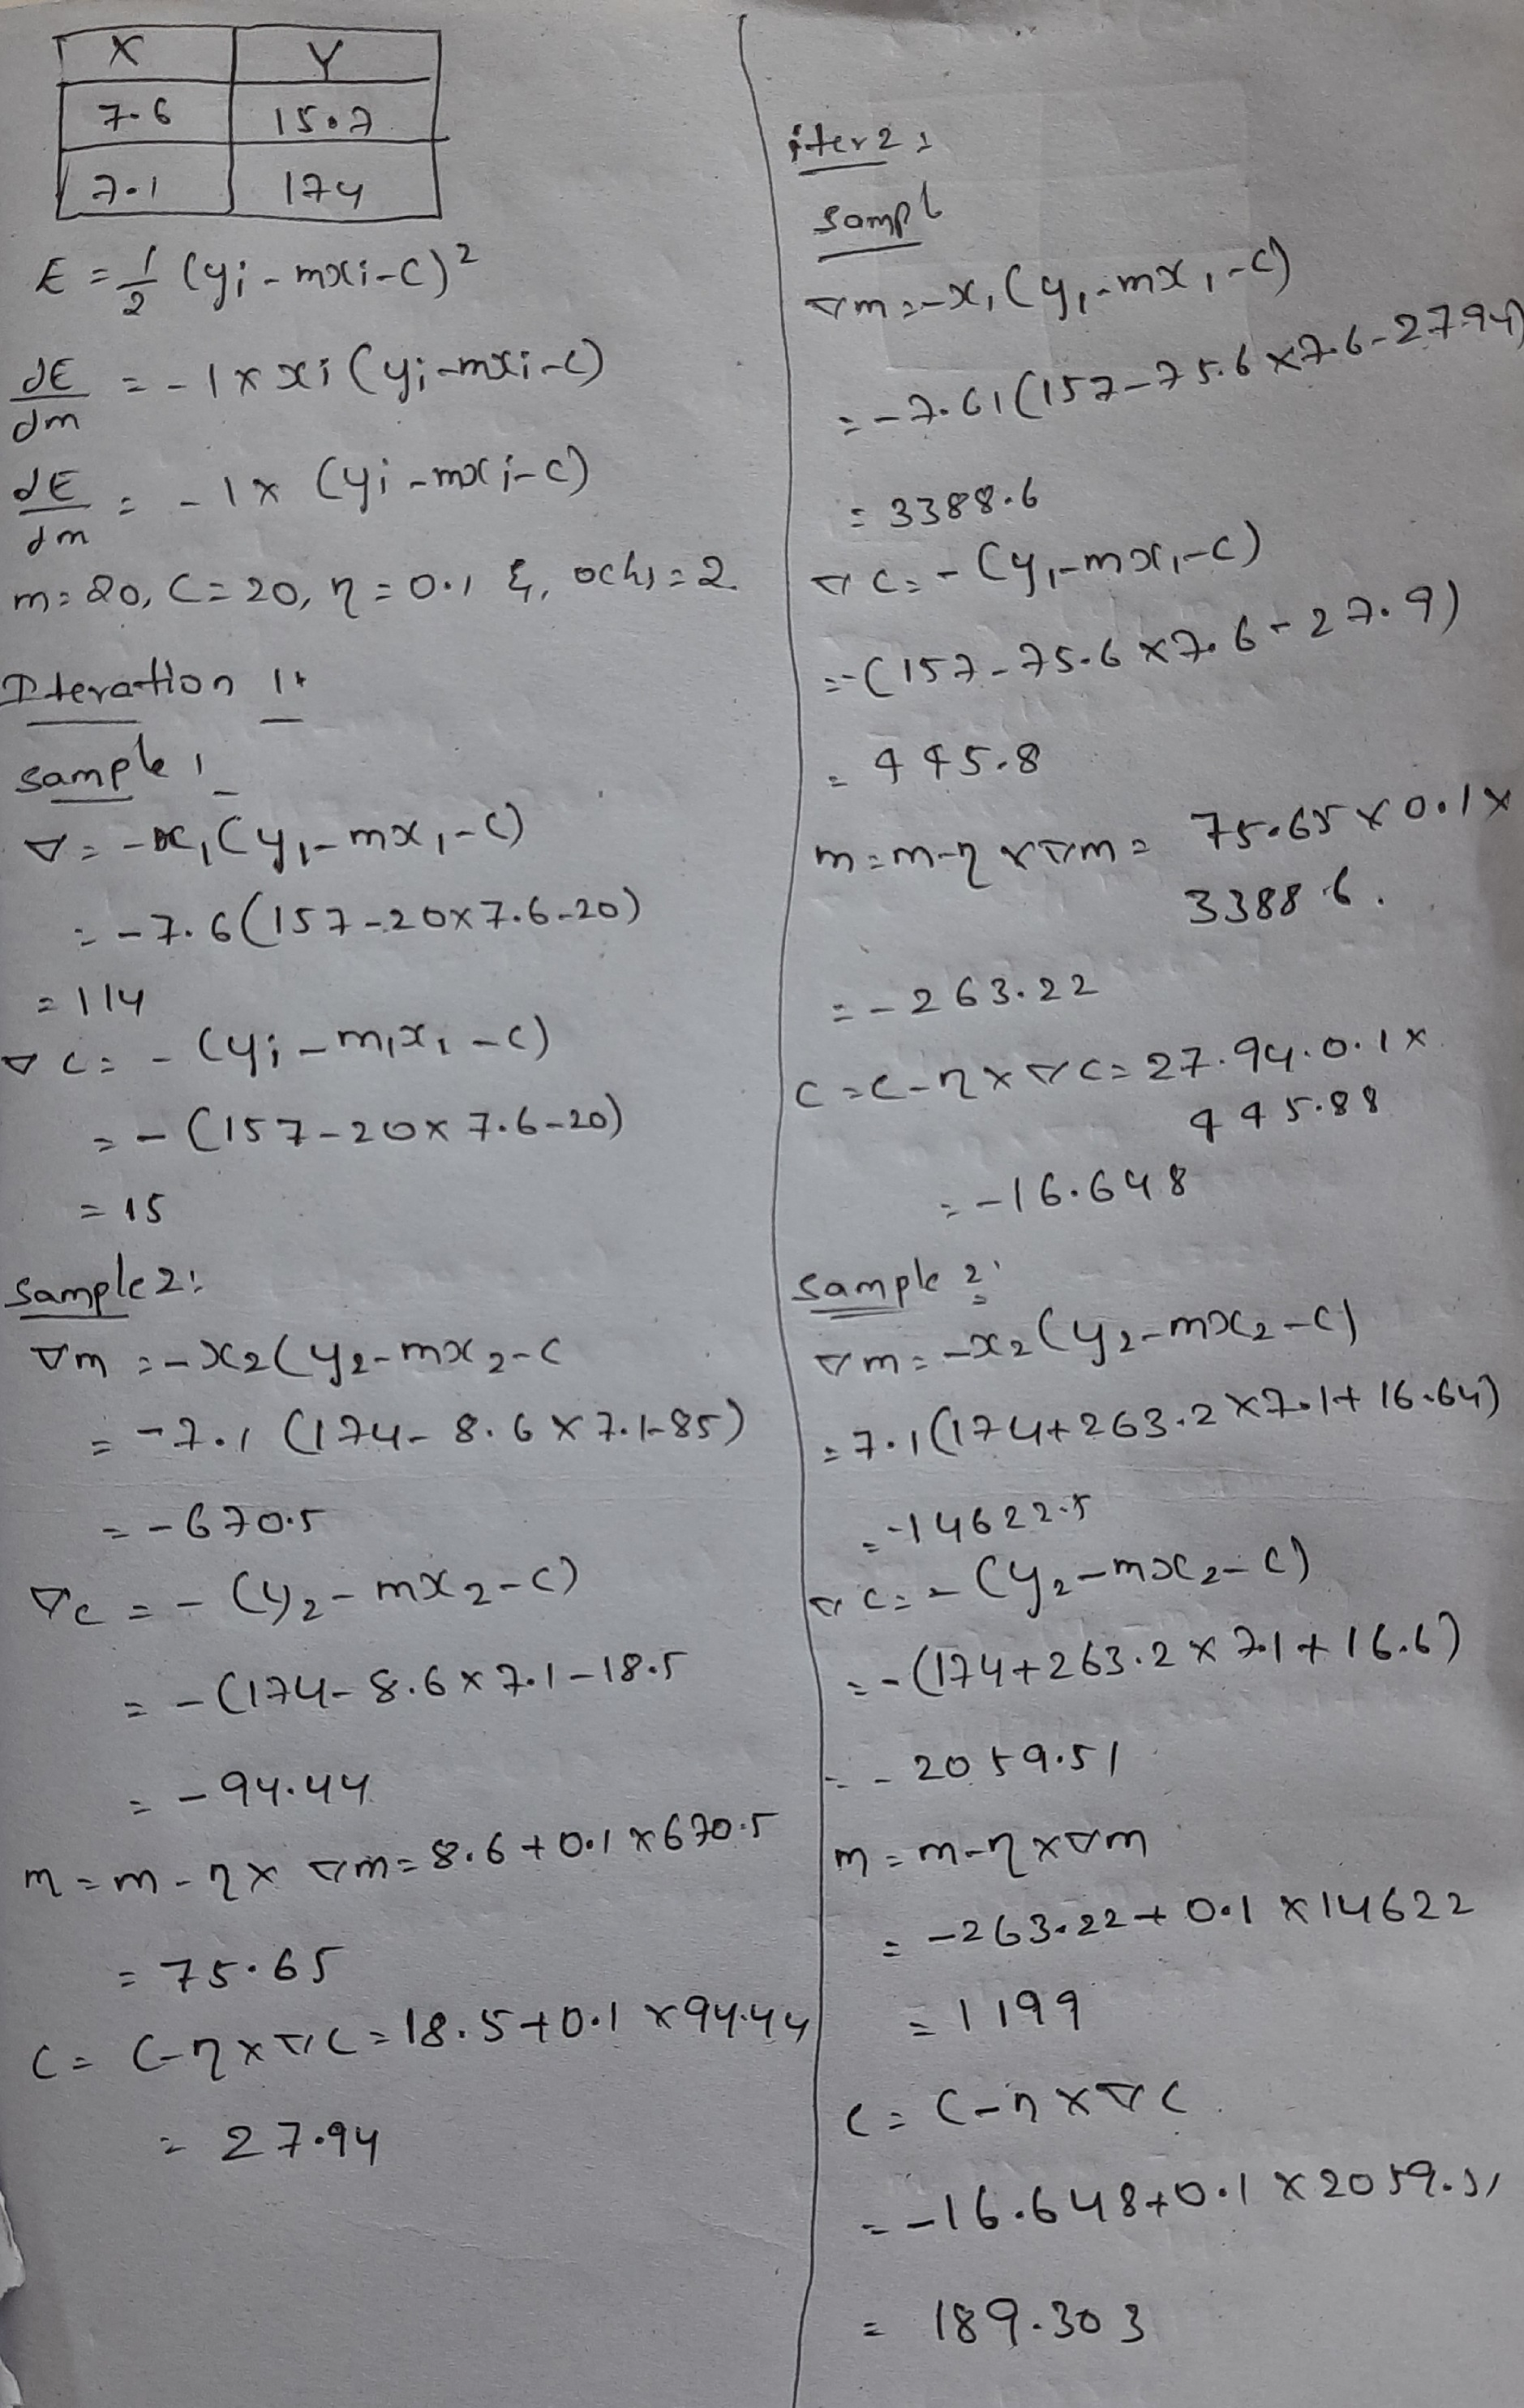 X Y
7.6 15.7
7.1 174
E = 1/2 (yi - mxi - c)²
dE/dm = -1 x xi (yi - mxi - c)
dE/dm = -1x (yi - mxi - c)
m = 20, C = 20, η = 0.1 &, ochs = 2
Iteration 1:
Sample 1
∇ = -x₁(y₁ - mx₁ - c)
= -7.6(157 - 20x7.6 - 20)
= 114
∇c = - (yi - m₁x₁ - c)
= - (157 - 20x7.6 - 20)
= 15
Sample 2:
∇m = -x₂(y₂ - mx₂ - c
= -7.1 (174 - 8.6 x 7.1 - 85)
= -670.5
∇c = - (y₂ - mx₂ - c)
= - (174 - 8.6 x 7.1 - 18.5
= -94.44
m = m - η x ∇m = 8.6 + 0.1 x 670.5
= 75.65
C = C - η x ∇C = 18.5 + 0.1 x 94.44
= 27.94
iter 2:
Sampl
∇m = -x₁(y₁ - mx₁ - c)
= -7.61(157 - 75.6 x 7.6 - 27.94)
= 3388.6
∇c = - (y₁ - mx₁ - c)
= -(157 - 75.6 x 7.6 - 27.9)
= 445.8
m = m - η x ∇m = 75.65 x 0.1 x
3388.6.
= -263.22
C = C - η x ∇C = 27.94.0.1 x
445.88
= -16.648
Sample 2:
∇m = -x₂(y₂ - mx₂ - c)
= 7.1(174 + 263.2 x 7.1 + 16.64)
= -14622.5
∇c = - (y₂ - mx₂ - c)
= - (174 + 263.2 x 7.1 + 16.6)
= - 2059.51
m = m - η x ∇m
= -263.22 + 0.1 x 14622
= 1199
C = C - η x ∇C
= -16.648 + 0.1 x 2059.51
= 189.303